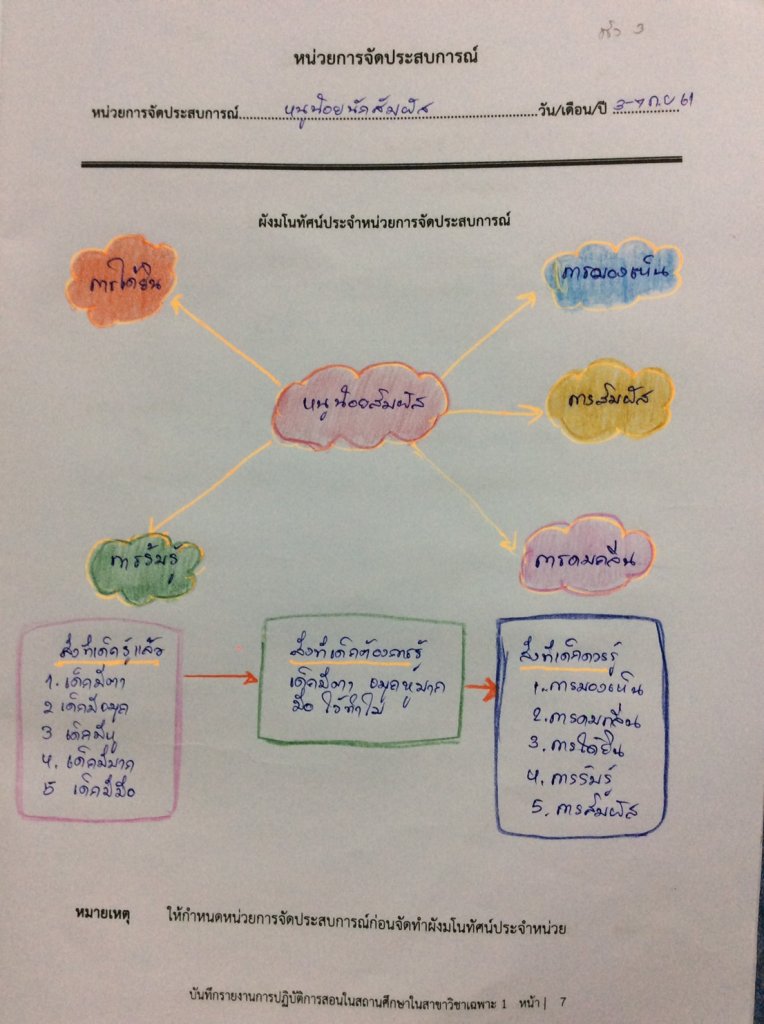 หน่วยการจัดประสบการณ์
หน่วยการจัดประสบการณ์ หนูน้อยนักสัมผัส วัน/เดือน/ปี 3-7 ก.ย 61
ผังมโนทัศน์ประจำหน่วยการจัดประสบการณ์
การได้ยิน
การมองเห็น
หนูน้อยสัมผัส
การสัมผัส
การรับรู้
การดมกลิ่น
สิ่งที่เด็กรู้แล้ว
1. เด็กมีตา
2 เด็กมีจมูก
3 เด็กมีหู
4. เด็กมีปาก
5 เด็กมีมือ
สิ่งที่เด็กต้องการรู้
เด็กมีตา จมูกหูปาก
มือ ไว้ทำไม
สิ่งที่เด็กควรรู้
1. การมองเห็น
2. การดมกลิ่น
3. การได้ยิน
4. การรับรู้
5. การสัมผัส
หมายเหตุ ให้กำหนดหน่วยการจัดประสบการณ์ก่อนจัดทำผังมโนทัศน์ประจำหน่วย
บันทึกรายงานการปฏิบัติการสอนในสถานศึกษาในสาขาวิชาเฉพาะ 1 หน้า | 7